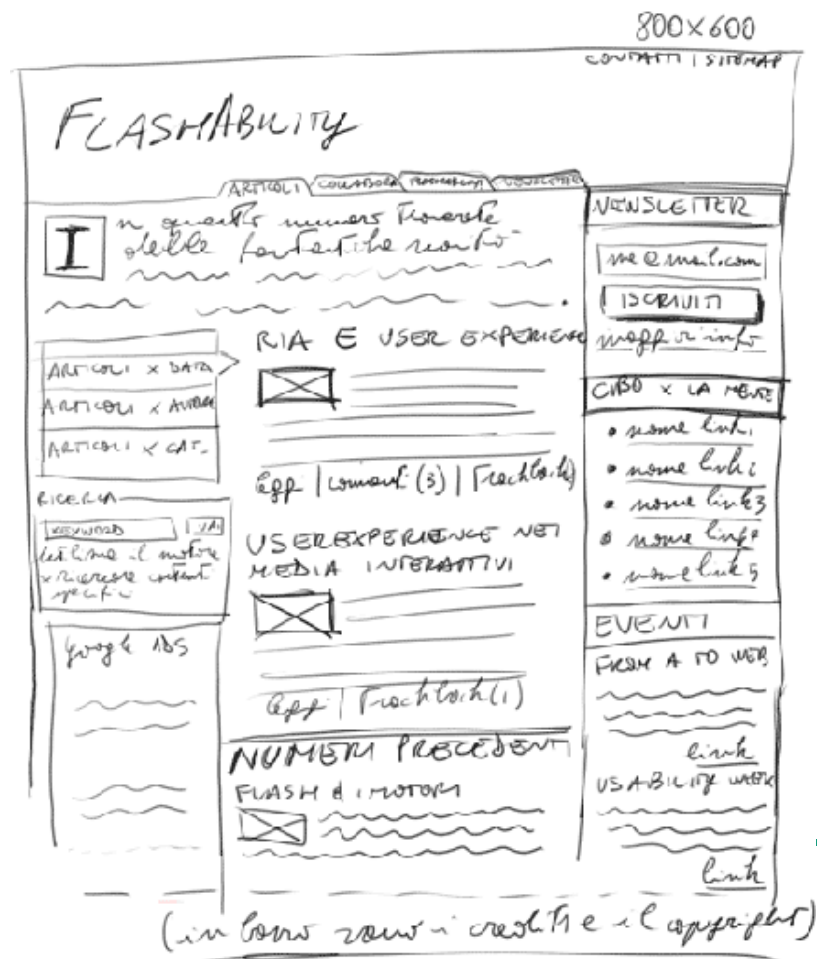 800×600
CONTATTI | SITEMAP
FLASHABILITY
ARTICOLI COLLABORA NEWSLETTER
In questo numero troverete
delle fantastiche novità
ARTICOLI × DATA
ARTICOLI × AUTORE
ARTICOLI × CAT.
RICERCA
KEYWORD VAI
utilizza il motore
× ricercare contenuti
specifici
google ADS
RIA E USER EXPERIENCE
leggi | commenti (3) | Trackback)
USER EXPERIENCE NEI
MEDIA INTERATTIVI
leggi | Trackback (1)
NUMERI PRECEDENTI
FLASH & I MOTORI
NEWSLETTER
me@mail.com
ISCRIVITI
maggiori info
CIBO × LA MENTE
• nome link1
• nome link2
• nome link3
• nome link4
• nome link5
EVENTI
FROM A TO WEB
link
USABILITY WEEK
link
(in basso sono i crediti e il copyright)